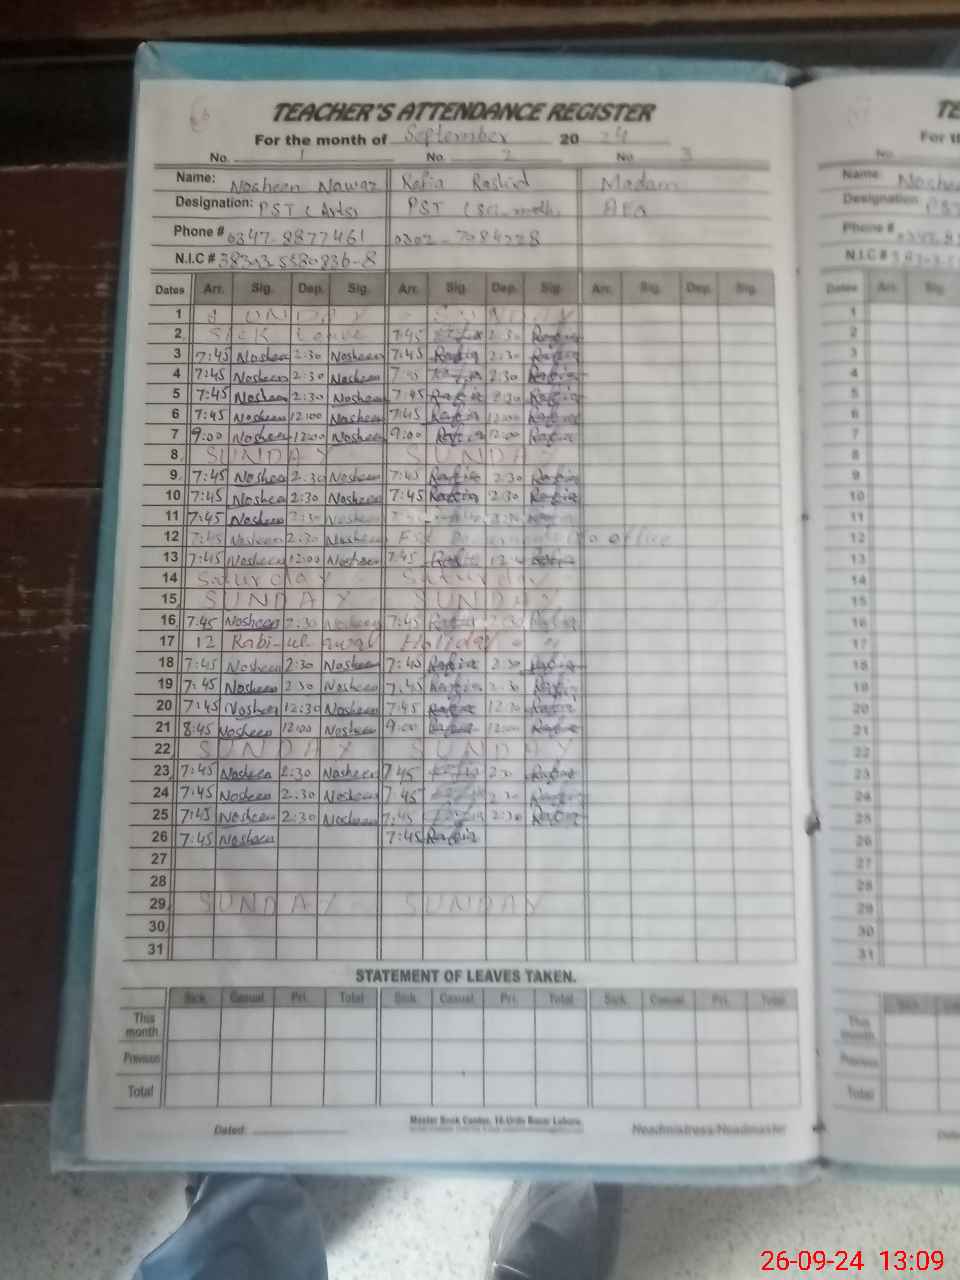 TEACHER'S ATTENDANCE REGISTER
For the month of September 20 24
No. 1 No. 2 No. 3
Name: Nosheen Nawaz Rafia Rashid Madam
Designation: PST (Arts) PST (Sci. math.
Phone # 0347-8877461
N.I.C #
Dates Arr. Sig. Dep. Sig. Arr. Sig. Dep. Sig. Arr. Sig. Dep. Sig.
1 SUNDAY SUNDAY
2 Sick Leave 7:45 2:30 Rafia
3 7:45 Nosheen 2:30 Nosheen 7:45 Rafia 2:30 Rafia
4 7:45 Nosheen 2:30 Nosheen 7:45 Rafia 2:30 Rafia
5 7:45 Nosheen 2:30 Nosheen 7:45 Rafia 2:30 Rafia
6 7:45 Nosheen 12:00 Nosheen 7:45 Rafia 12:00 Rafia
7 9:00 Nosheen 12:00 Nosheen 9:00 Rafia 12:00 Rafia
8 SUNDAY SUNDAY
9 7:45 Nosheen 2:30 Nosheen 7:45 Rafia 2:30 Rafia
10 7:45 Nosheen 2:30 Nosheen 7:45 Rafia 2:30 Rafia
11 7:45 Nosheen 2:30 Nosheen
12 7:45 Nosheen 2:30 Nosheen office
13 7:45 Nosheen 12:00 Nosheen 7:45 Rafia Rafia
14 Saturday Saturday
15 SUNDAY SUNDAY
16 7:45 Nosheen 2:30 Nosheen 7:45 Rafia 2:30 Rafia
17 12 Rabi-ul-awal Holiday
18 7:45 Nosheen 2:30 Nosheen 7:45 Rafia 2:30 Rafia
19 7:45 Nosheen 2:30 Nosheen 7:45 Rafia 2:30 Rafia
20 7:45 Nosheen 12:30 Nosheen 7:45 Rafia 12:30 Rafia
21 8:45 Nosheen 12:00 Nosheen 9:00 Rafia 12:00 Rafia
22 SUNDAY SUNDAY
23 7:45 Nosheen 2:30 Nosheen 7:45 Rafia
24 7:45 Nosheen 2:30 Nosheen 7:45 Rafia
25 7:45 Nosheen 2:30 Nosheen 7:45 2:30 Rafia
26 7:45 Nosheen 7:45 Rafia
27
28
29 SUNDAY SUNDAY
30
31
STATEMENT OF LEAVES TAKEN.
Sick. Casual. Pri. Total Sick. Casual. Pri. Total Sick. Casual. Pri. Total
This month
Previous
Total
Master Book Center, 16-Urdu Bazar Lahore.
Dated: Headmistress/Headmaster
26-09-24 13:09